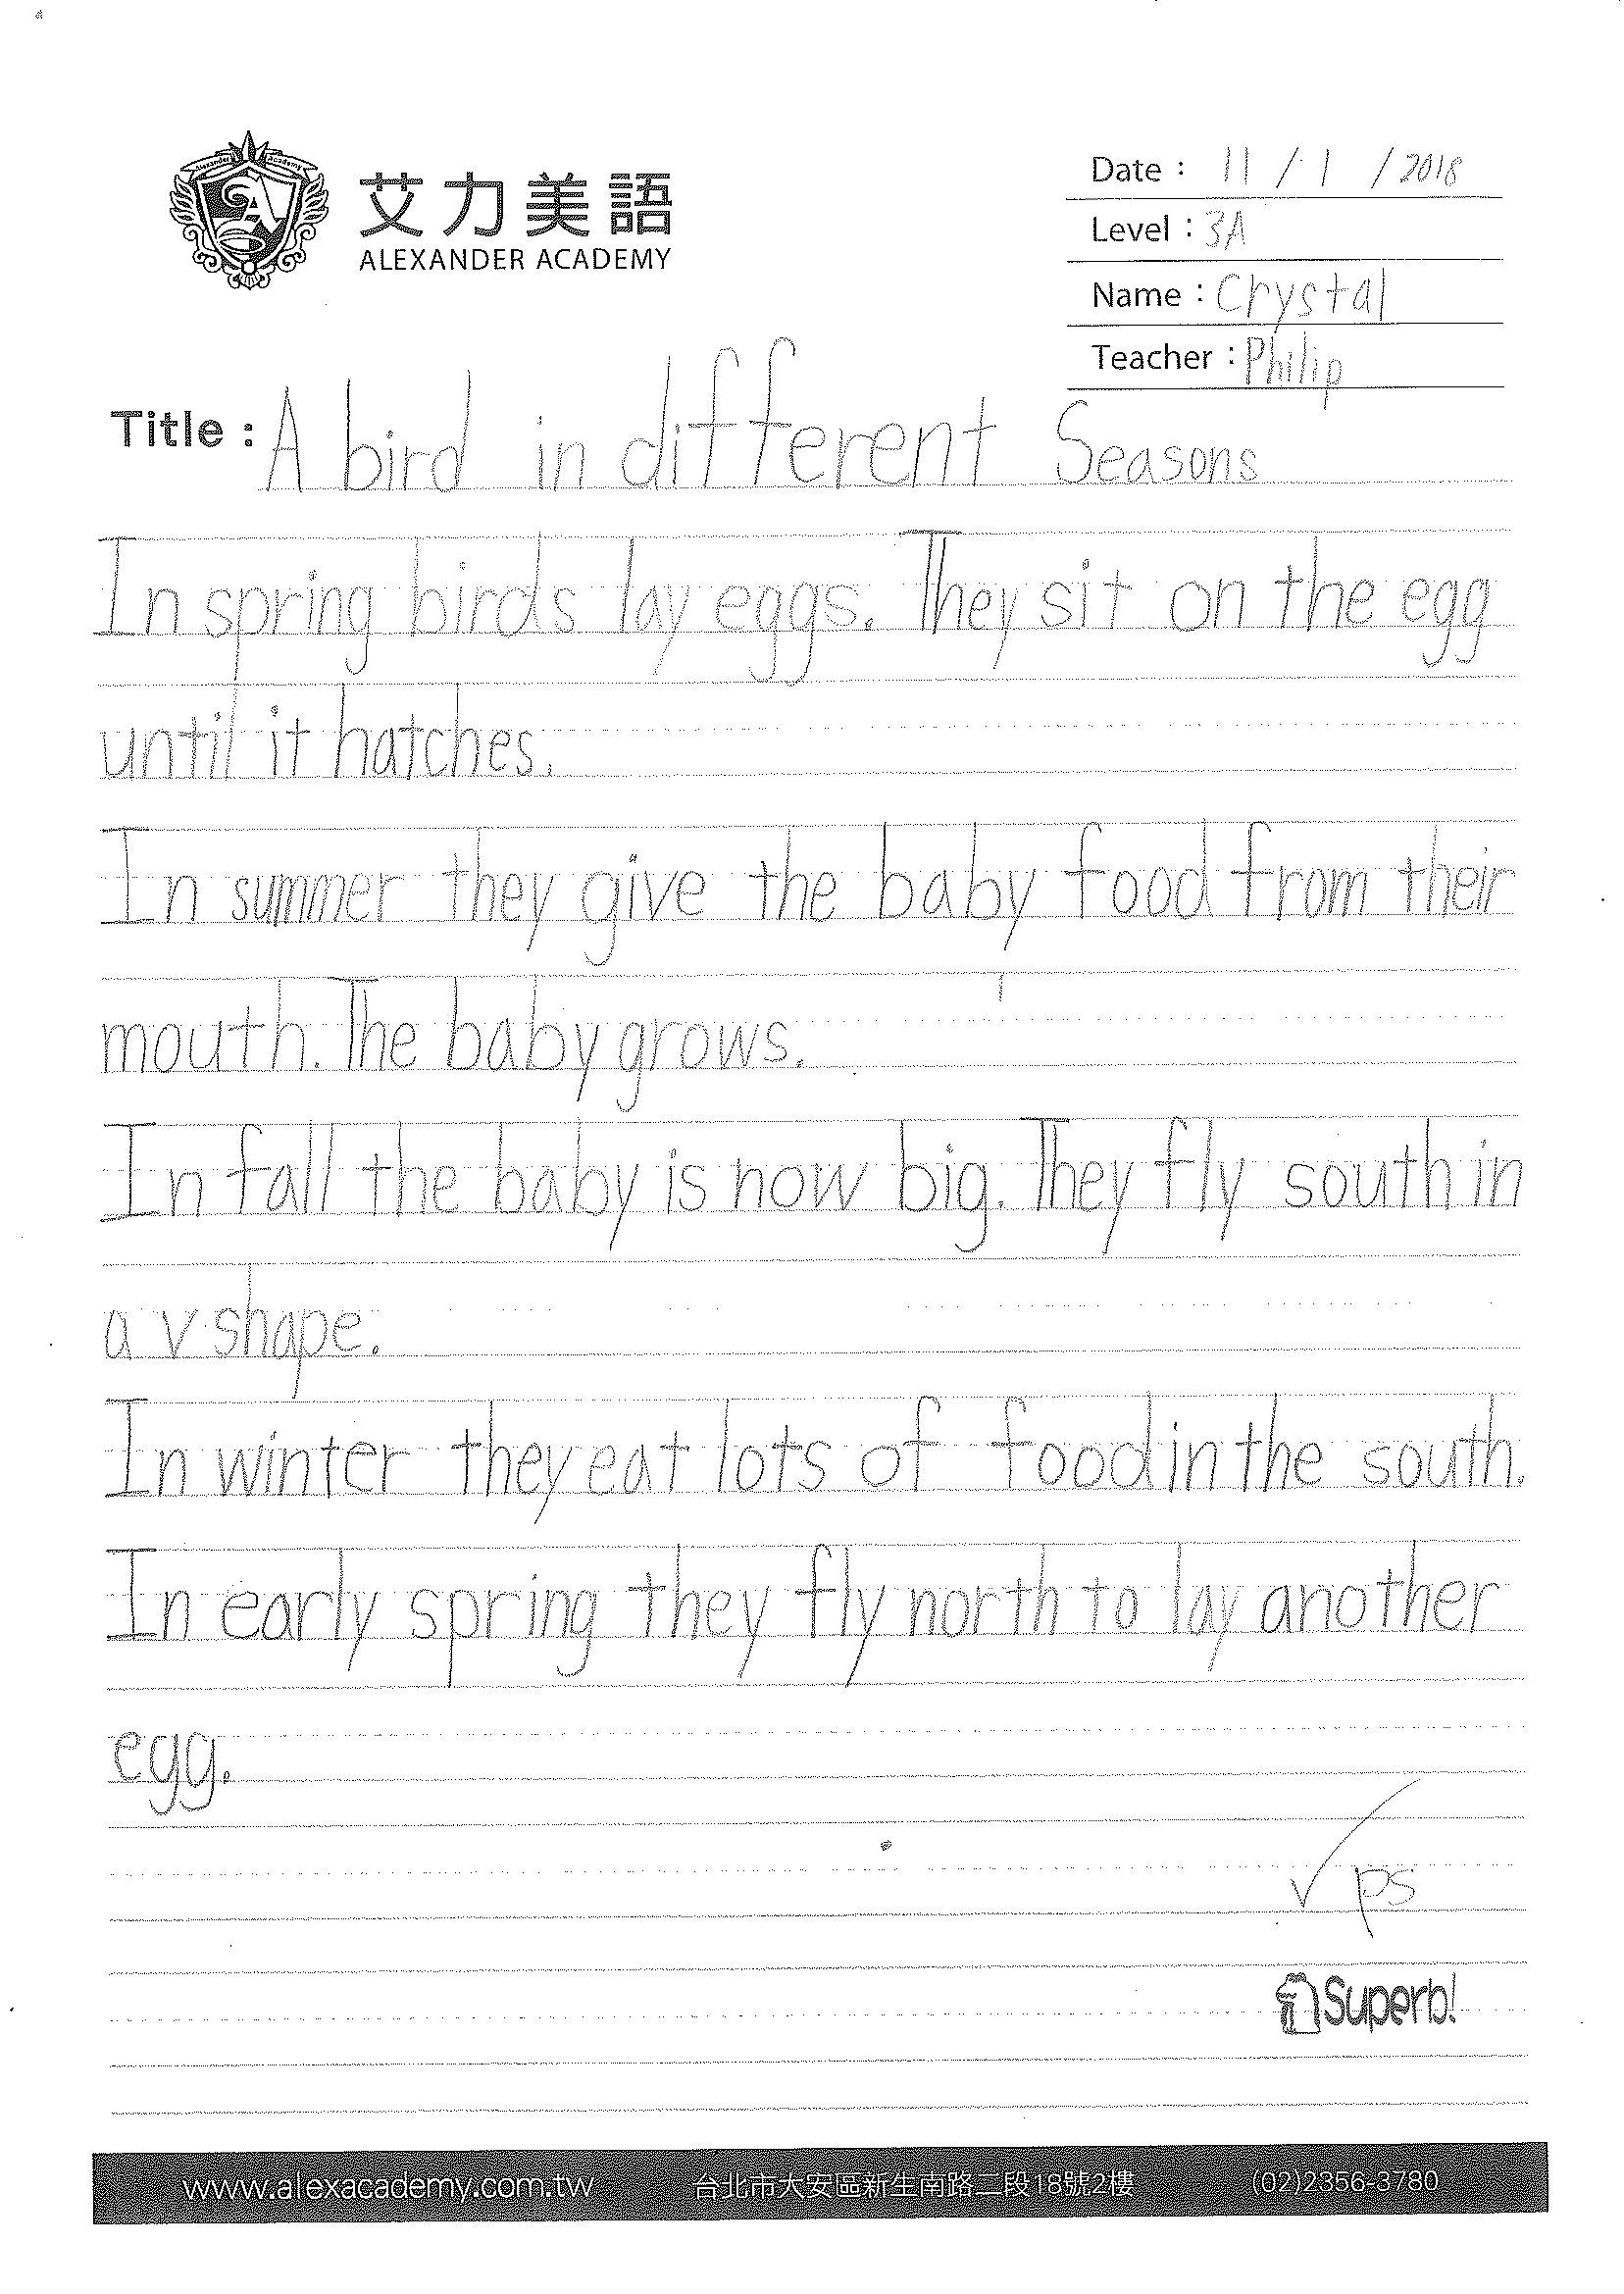 艾力美語
ALEXANDER ACADEMY
Alexander Academy
Date : 11 / 1 / 2018
Level : 3A
Name : Crystal
Teacher : Philip
Title : A bird in different Seasons
In spring birds lay eggs. They sit on the egg
until it hatches.
In summer they give the baby food from their
mouth. The baby grows.
In fall the baby is now big. They fly south in
a v shape.
In winter they eat lots of food in the south.
In early spring they fly north to lay another
egg.
ps
Superb!
www.alexacademy.com.tw 台北市大安區新生南路二段18號2樓 (02)2356-3780